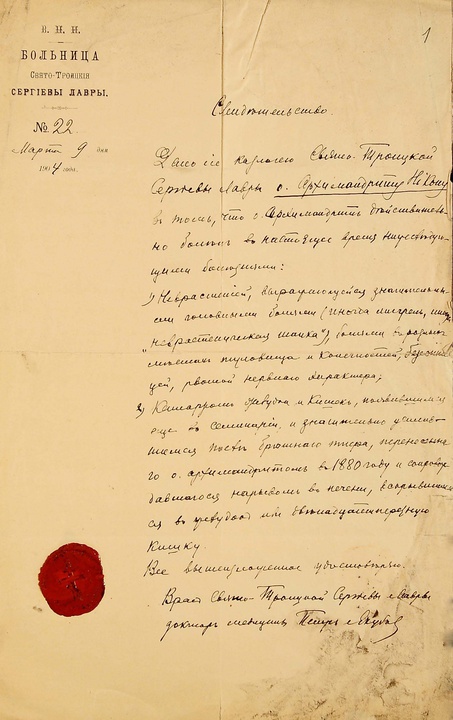 В. Н. Н.
БОЛЬНИЦА
Свято-Троицкія
СЕРГІЕВЫ ЛАВРЫ.
№ 22
Мартъ 9 дня
года.
1
Свидѣтельство.
Дано сіе Свято-Троицкой
Сергіевы Лавры о. Архимандриту Никону
въ томъ, что о. Архимандритъ дѣйствитель-
но боленъ въ настоящее время нижеслѣдую-
щими болѣзнями:
1) Неврастеніей, выражающейся значительны-
ми головными болями (иногда мигрень, иногда
"неврастеническая шапка"), болями въ разныхъ
мѣстахъ туловища и конечностей, безсонни-
цей, рвотой нервнаго характера;
2) Катарромъ желудка и кишекъ, появившимся
еще въ семинаріи, и значительно усилив-
шимся послѣ брюшного тифа, перенесенна-
го о. архимандритомъ въ 1880 году и сопрово-
ждавшагося нарывомъ въ печени, вскрывшим-
ся въ желудокъ или двѣнадцатиперстную
кишку.
Все вышеизложенное удостовѣряю.
Врачъ Свято-Троицкой Сергіевы Лавры
докторъ медицины Петръ